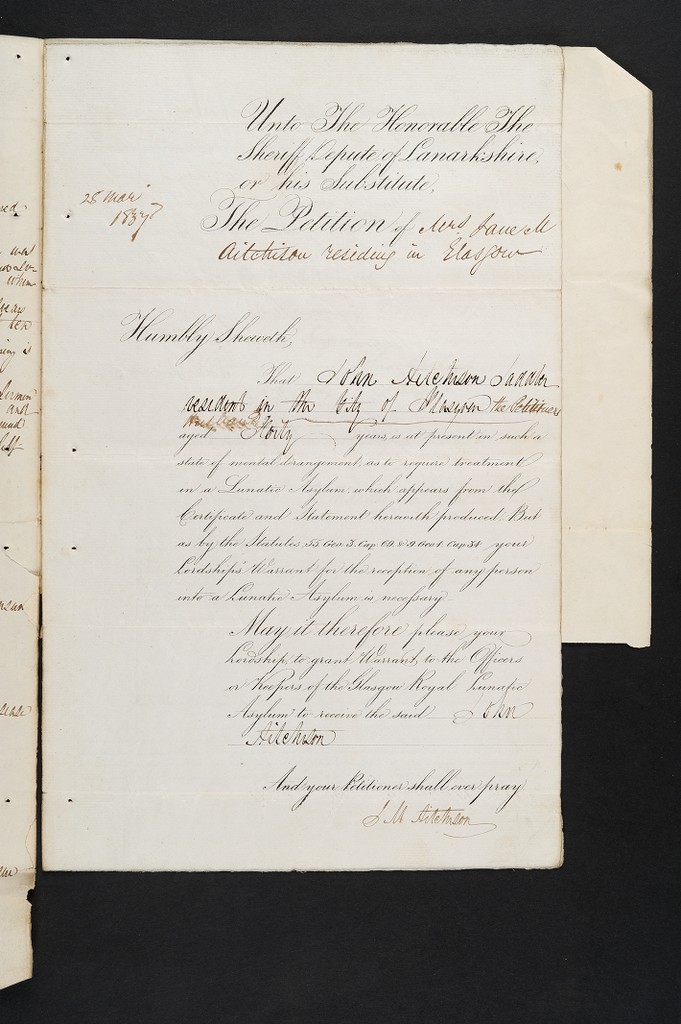 Unto The Honorable The
Sheriff Depute of Lanarkshire,
or his Substitute,
28 Mar
1837
The Petition of Mrs Jane M
Aitchison residing in Glasgow
Humbly Sheweth,
That John Aitchison Saddler
resident in the City of Glasgow the Petitioners
husband
aged Forty years, is at present in such a
state of mental derangement, as to require treatment
in a Lunatic Asylum, which appears from the
Certificate and Statement herewith produced. But
as by the Statutes, 55 Geo. 3. Cap. 69. & 9 Geo 4. Cap. 34 your
Lordship's Warrant for the reception of any person
into a Lunatic Asylum is necessary.
May it therefore please your
Lordship, to grant Warrant, to the Officers
or Keepers of the Glasgow Royal Lunatic
Asylum to receive the said John
Aitchison
And your Petitioner shall ever pray
J M Aitchison